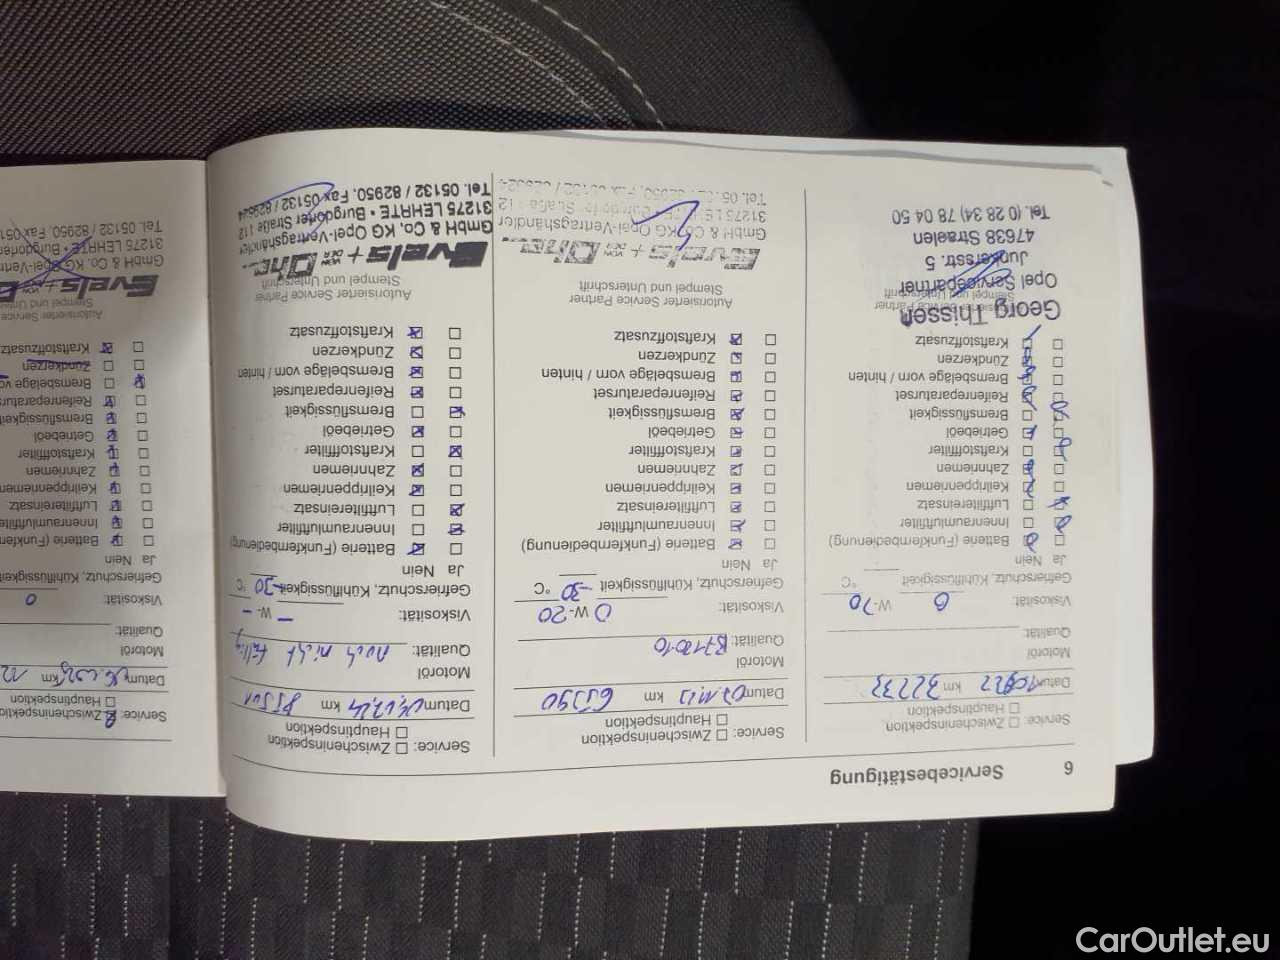 6 Servicebestätigung
Service: ☐ Zwischeninspektion
☐ Hauptinspektion
Datum km 32233
Motoröl
Qualität:
Viskosität: 0 W-
Gefrierschutz, Kühlflüssigkeit °C
Ja Nein
Batterie (Funkfernbedienung)
Innenraumluftfilter
Luftfiltereinsatz
Keilrippenriemen
Zahnriemen
Kraftstofffilter
Getriebeöl
Bremsflüssigkeit
Reifenreparaturset
Bremsbeläge vorn / hinten
Zündkerzen
Kraftstoffzusatz
Autorisierter Service Partner
Stempel und Unterschrift
Georg Thissen
Opel Servicepartner
Junkersstr. 5
47638 Straelen
Tel. (0 28 34) 78 04 50
Service: ☐ Zwischeninspektion
☐ Hauptinspektion
Datum km
Motoröl
Qualität:
Viskosität: 0 W-20
Gefrierschutz, Kühlflüssigkeit -30 °C
Ja Nein
Batterie (Funkfernbedienung)
Innenraumluftfilter
Luftfiltereinsatz
Keilrippenriemen
Zahnriemen
Kraftstofffilter
Getriebeöl
Bremsflüssigkeit
Reifenreparaturset
Bremsbeläge vorn / hinten
Zündkerzen
Kraftstoffzusatz
Autorisierter Service Partner
Stempel und Unterschrift
Evels + VON DER Ohe
GmbH & Co. KG Opel-Vertragshändler
Service: ☐ Zwischeninspektion
☐ Hauptinspektion
Datum km
Motoröl
Qualität: noch nicht fällig
Viskosität: – W- –
Gefrierschutz, Kühlflüssigkeit -30 °C
Ja Nein
Batterie (Funkfernbedienung)
Innenraumluftfilter
Luftfiltereinsatz
Keilrippenriemen
Zahnriemen
Kraftstofffilter
Getriebeöl
Bremsflüssigkeit
Reifenreparaturset
Bremsbeläge vorn / hinten
Zündkerzen
Kraftstoffzusatz
Autorisierter Service Partner
Stempel und Unterschrift
Evels + VON DER Ohe
GmbH & Co. KG Opel-Vertragshändler
31275 LEHRTE • Burgdorfer Straße 112
Tel. 05132 / 82950, Fax 05132 / 829524
Service: Zwischeninspektion
☐ Hauptinspektion
Datum km
Motoröl
Qualität:
Viskosität: 0
Gefrierschutz, Kühlflüssigkeit
Ja Nein
Batterie (Funkfern
Innenraumluftfilte
Luftfiltereinsatz
Keilrippenriemen
Zahnriemen
Kraftstofffilter
Getriebeöl
Bremsflüssigkeit
Reifenreparaturs
Bremsbeläge vo
Zündkerzen
Kraftstoffzusatz
Autorisierter Service
Stempel und Unters
Evels +
GmbH & Co. KG Opel-Vertra
31275 LEHRTE • Burgdorfe
Tel. 05132 / 82950, Fax 051
CarOutlet.eu